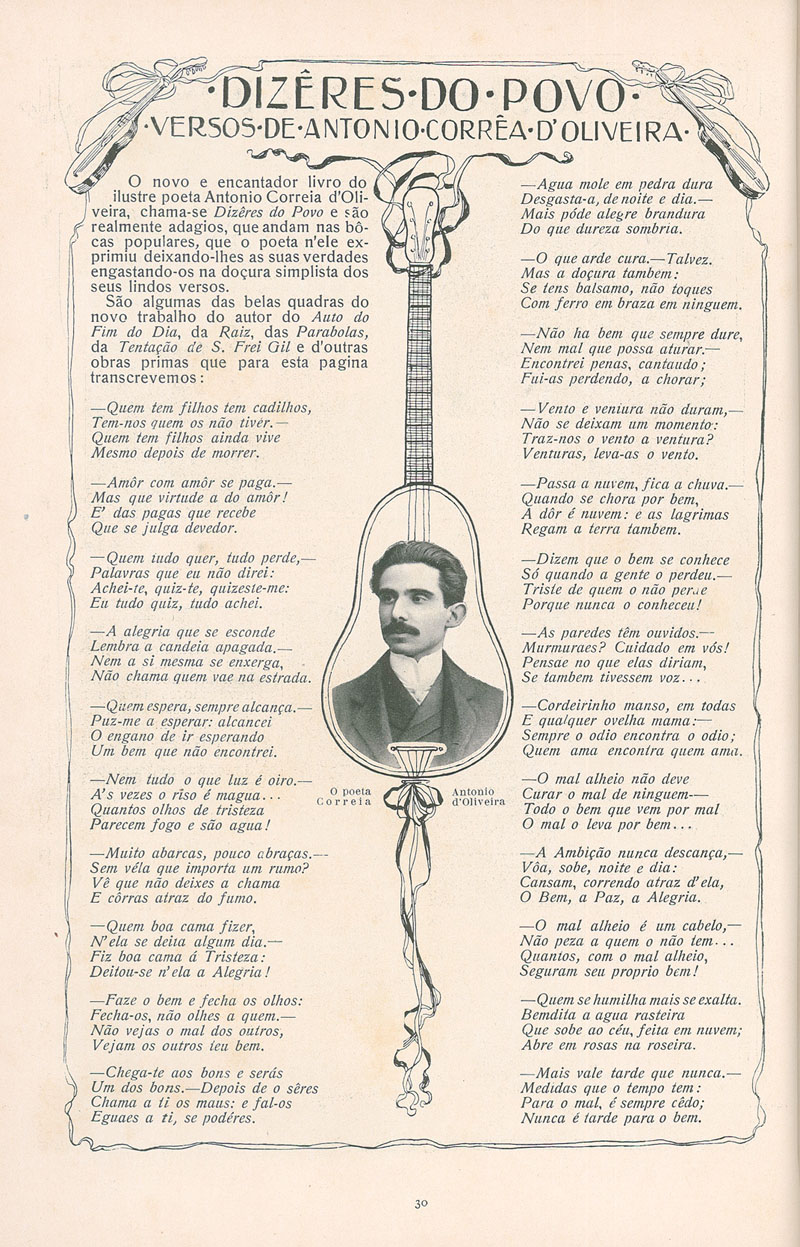 ·DIZÊRES·DO·POVO·
·VERSOS·DE·ANTONIO·CORRÊA·D'OLIVEIRA·
O novo e encantador livro do
ilustre poeta Antonio Correia d'Oli-
veira, chama-se Dizêres do Povo e são
realmente adagios, que andam nas bô-
cas populares, que o poeta n'ele ex-
primiu deixando-lhes as suas verdades
engastando-os na doçura simplista dos
seus lindos versos.
São algumas das belas quadras do
novo trabalho do autor do Auto do
Fim do Dia, da Raiz, das Parabolas,
da Tentação de S. Frei Gil e d'outras
obras primas que para esta pagina
transcrevemos:
—Quem tem filhos tem cadilhos,
Tem-nos quem os não tivér.—
Quem tem filhos ainda vive
Mesmo depois de morrer.
—Amôr com amôr se paga.—
Mas que virtude a do amôr!
E' das pagas que recebe
Que se julga devedor.
—Quem tudo quer, tudo perde,—
Palavras que eu não direi:
Achei-te, quiz-te, quizeste-me:
Eu tudo quiz, tudo achei.
—A alegria que se esconde
Lembra a candeia apagada.—
Nem a si mesma se enxerga,
Não chama quem vae na estrada.
—Quem espera, sempre alcança.—
Puz-me a esperar: alcancei
O engano de ir esperando
Um bem que não encontrei.
—Nem tudo o que luz é oiro.—
A's vezes o riso é magua...
Quantos olhos de tristeza
Parecem fogo e são agua!
—Muito abarcas, pouco abraças.—
Sem véla que importa um rumo?
Vê que não deixes a chama
E côrras atraz do fumo.
—Quem boa cama fizer,
N'ela se deita algum dia.—
Fiz boa cama á Tristeza:
Deitou-se n'ela a Alegria!
—Faze o bem e fecha os olhos:
Fecha-os, não olhes a quem.—
Não vejas o mal dos outros,
Vejam os outros teu bem.
—Chega-te aos bons e serás
Um dos bons.—Depois de o sêres
Chama a ti os maus: e fal-os
Eguaes a ti, se podéres.
O poeta Antonio
Correia d'Oliveira
—Agua mole em pedra dura
Desgasta-a, de noite e dia.—
Mais póde alegre brandura
Do que dureza sombria.
—O que arde cura.—Talvez.
Mas a doçura tambem:
Se tens balsamo, não toques
Com ferro em braza em ninguem.
—Não ha bem que sempre dure,
Nem mal que possa aturar.—
Encontrei penas, cantaudo;
Fui-as perdendo, a chorar;
—Vento e ventura não duram,—
Não se deixam um momento:
Traz-nos o vento a ventura?
Venturas, leva-as o vento.
—Passa a nuvem, fica a chuva.—
Quando se chora por bem,
A dôr é nuvem: e as lagrimas
Regam a terra tambem.
—Dizem que o bem se conhece
Só quando a gente o perdeu.—
Triste de quem o não perde
Porque nunca o conheceu!
—As paredes têm ouvidos.—
Murmuraes? Cuidado em vós!
Pensae no que elas diriam,
Se tambem tivessem voz...
—Cordeirinho manso, em todas
E qualquer ovelha mama:—
Sempre o odio encontra o odio;
Quem ama encontra quem ama.
—O mal alheio não deve
Curar o mal de ninguem—
Todo o bem que vem por mal
O mal o leva por bem...
—A Ambição nunca descança,—
Vôa, sobe, noite e dia:
Cansam, correndo atraz d'ela,
O Bem, a Paz, a Alegria.
—O mal alheio é um cabelo,—
Não peza a quem o não tem...
Quantos, com o mal alheio,
Seguram seu proprio bem!
—Quem se humilha mais se exalta.
Bemdita a agua rasteira
Que sobe ao céu, feita em nuvem;
Abre em rosas na roseira.
—Mais vale tarde que nunca.—
Medidas que o tempo tem:
Para o mal, é sempre cêdo;
Nunca é tarde para o bem.
30